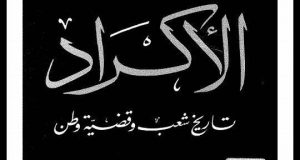 الأكراد
تاريخ شعب وقضية وطن